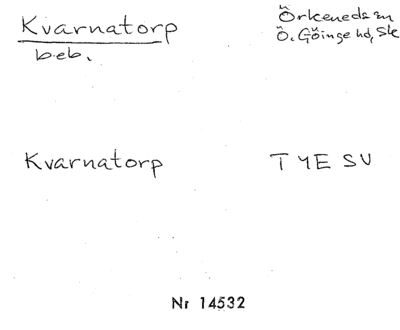 Kvarnatorp
beb.
Örkeneds sn
Ö. Göinge hd, Sk
Kvarnatorp
T 4E SV
Nr 14532